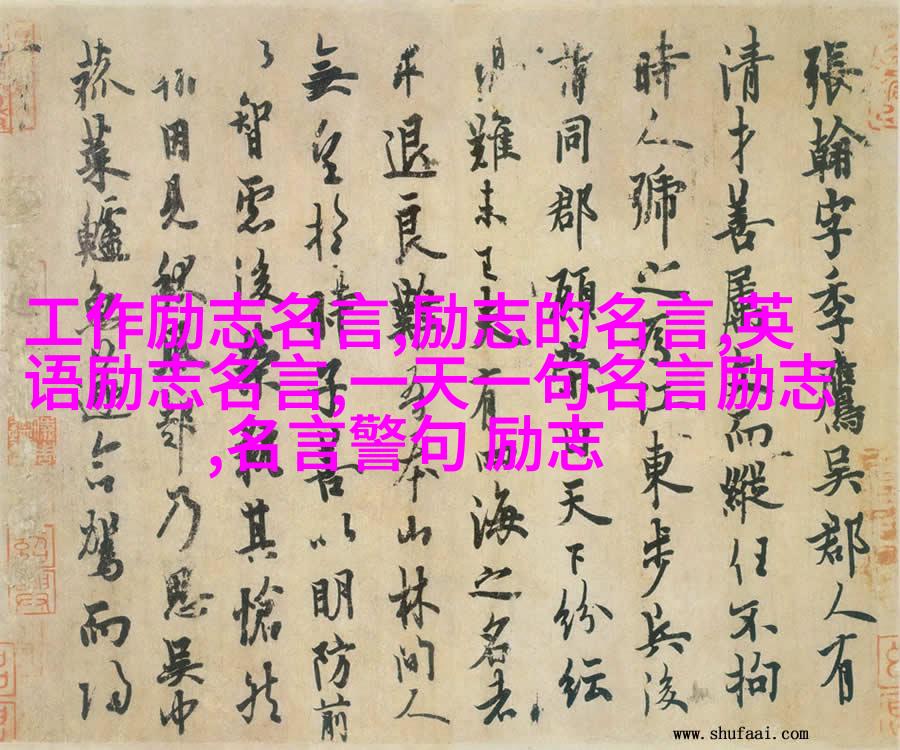 張翰字季鷹吳郡人有
清才善屬文而縱任不拘
時人號之為江東步兵後
謂同郡顧榮曰天下紛紜
難未已夫有四海之名者
求退良難吾本山林間人
無望於時子善以明防前
以智慮後榮執其愴然
翰因見秋風起乃思吳中
菰菜鱸魚遂命駕而歸
工作励志名言,励志的名言,英
语励志名言,一天一句名言励志
,名言警句 励志
www.shufaai.com